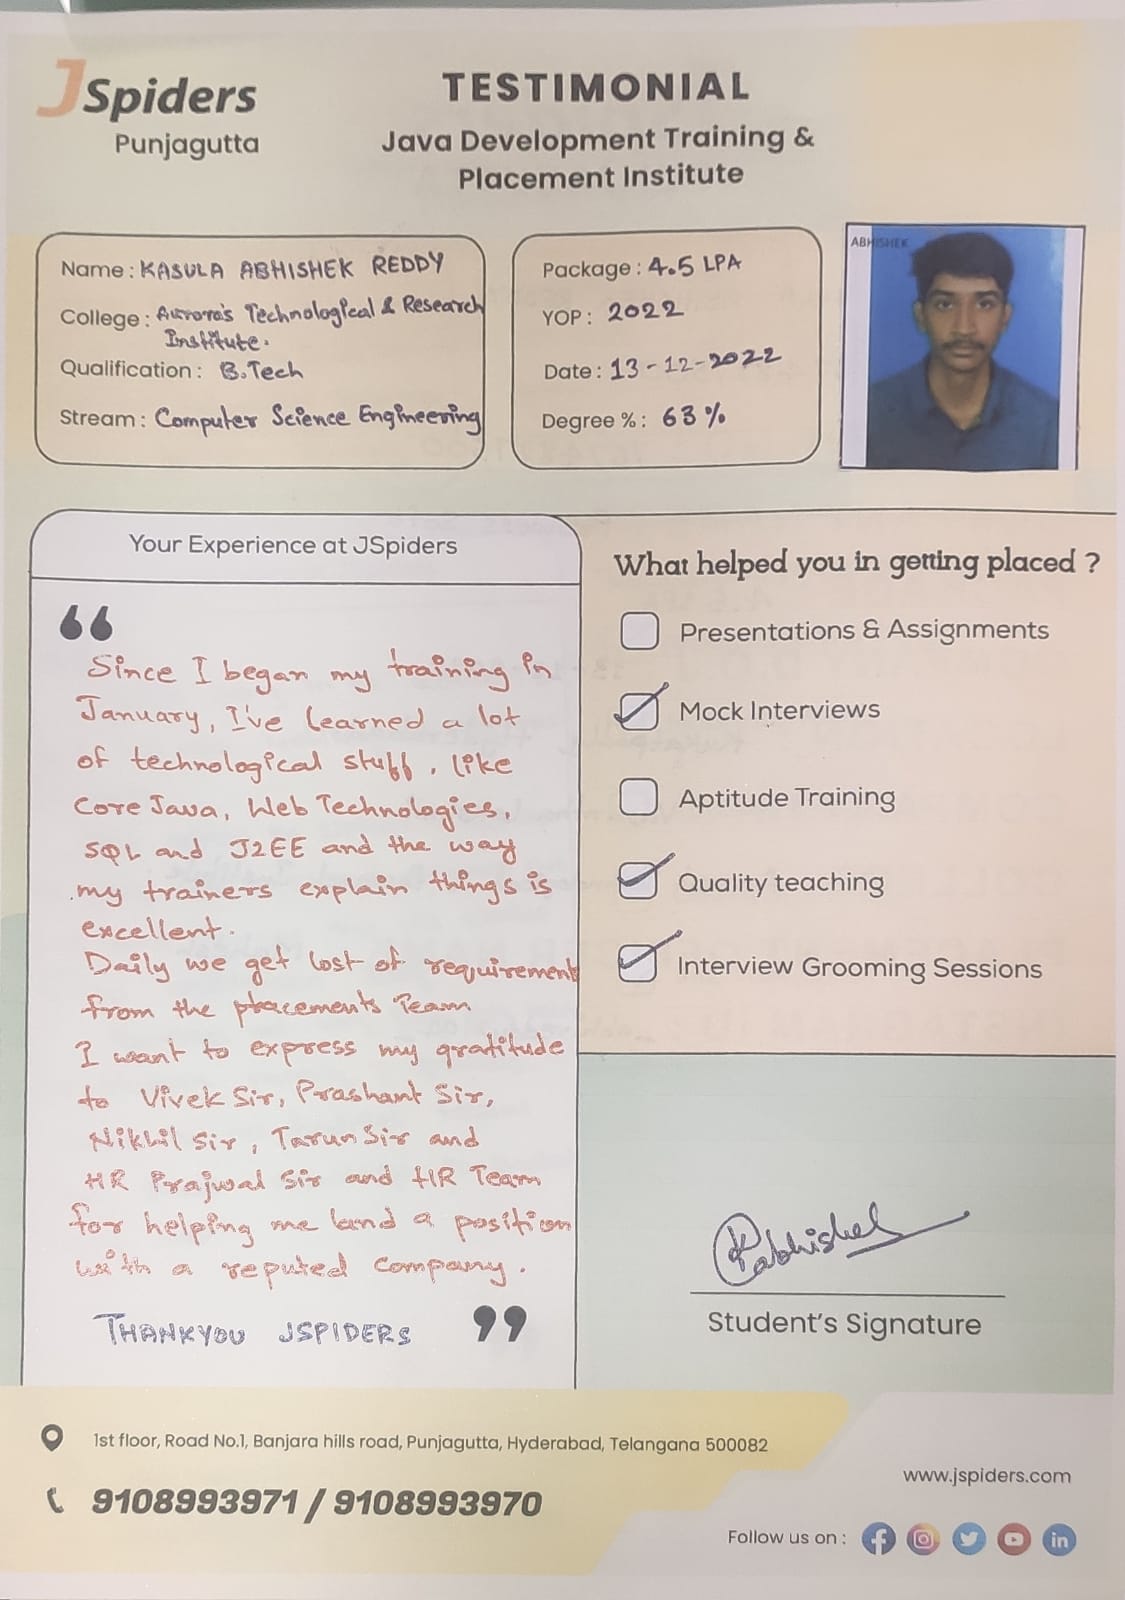 JSpiders
Punjagutta
TESTIMONIAL
Java Development Training &
Placement Institute
Name : KASULA ABHISHEK REDDY
College : Aurora's Technological & Research
Institute.
Qualification : B.Tech
Stream : Computer Science Engineering
Package : 4.5 LPA
YOP : 2022
Date : 13-12-2022
Degree % : 63%
ABHISHEK
Your Experience at JSpiders
“
Since I began my training in
January, I've learned a lot
of technological stuff, like
Core Java, Web Technologies,
SQL and J2EE and the way
my trainers explain things is
excellent.
Daily we get lost of requirement
from the placements Team
I want to express my gratitude
to Vivek Sir, Prashant Sir,
Nikhil Sir, Tarun Sir and
HR Prajwal Sir and HR Team
for helping me land a position
with a reputed company.
THANKYOU JSPIDERS
”
What helped you in getting placed ?
Presentations & Assignments
Mock Interviews
Aptitude Training
Quality teaching
Interview Grooming Sessions
Kabhishek
Student's Signature
1st floor, Road No.1, Banjara hills road, Punjagutta, Hyderabad, Telangana 500082
9108993971 / 9108993970
www.jspiders.com
Follow us on :